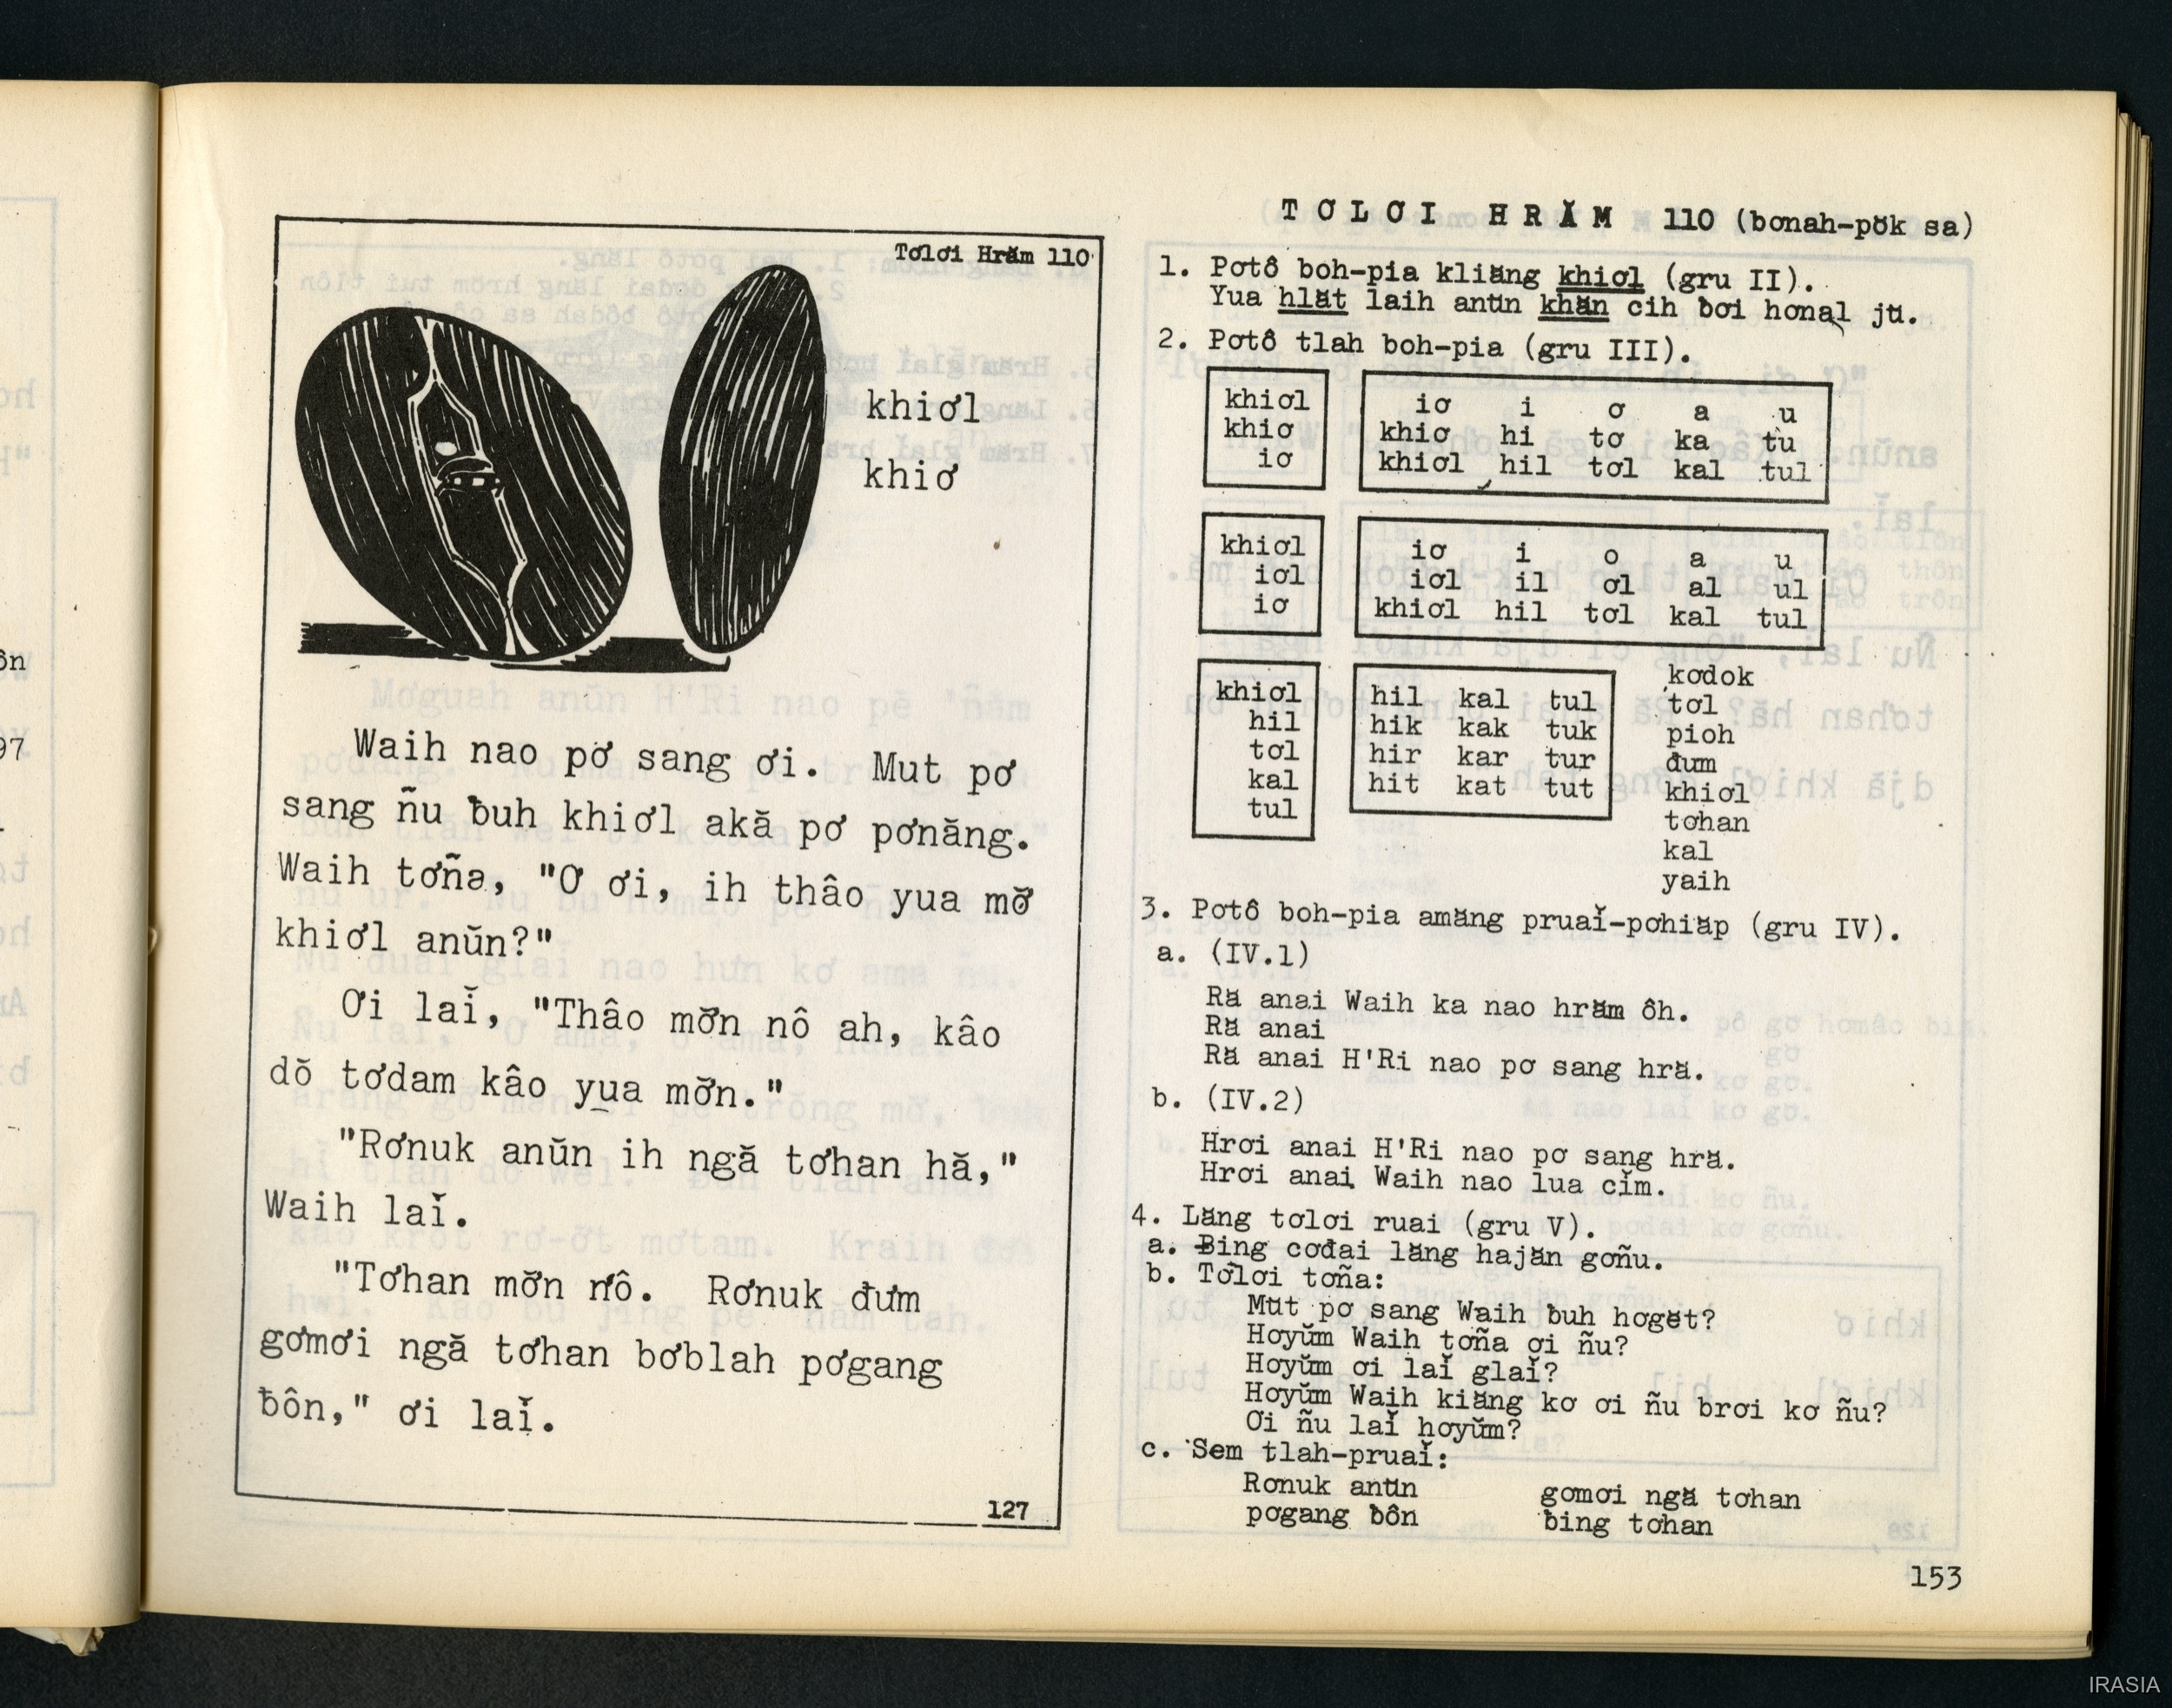 Tơlơi Hrăm 110
khiơl
khiơ
Waih nao pơ sang ơi. Mut pơ
sang ñu ƀuh khiơl akă pơ pơnăng.
Waih tơña, "Ơ ơi, ih thâo yua mơ̆
khiơl anŭn?"
Ơi laĭ, "Thâo mơ̆n nô ah, kâo
dŏ tơdam kâo yua mơ̆n."
"Rơnuk anŭn ih ngă tơhan hă,"
Waih laĭ.
"Tơhan mơ̆n rơ̂. Rơnuk đưm
gơmơi ngă tơhan bơblah pơgang
ƀôn," ơi laĭ.
127
TƠLƠI HRĂM 110 (bơnah-pŏk sa)
1. Pơtô boh-pia kliăng khiơl (gru II).
Yua hlăt laih anŭn khăn cih ƀơi hơnal jŭ.
2. Pơtô tlah boh-pia (gru III).
khiơl
khiơ
iơ
iơ i ơ a u
khiơ hi tơ ka tu
khiơl hil tơl kal tul
khiơl
iơl
iơ
iơ i o a u
iơl il ơl al ul
khiơl hil tơl kal tul
khiơl
hil
tơl
kal
tul
hil kal tul
hik kak tuk
hir kar tur
hit kat tut
kơdok
tơl
pioh
đưm
khiơl
tơhan
kal
yaih
3. Pơtô boh-pia amăng pruaĭ-pơhiăp (gru IV).
a. (IV.1)
Ră anai Waih ka nao hrăm ôh.
Ră anai
Ră anai H'Ri nao pơ sang hră.
b. (IV.2)
Hrơi anai H'Ri nao pơ sang hră.
Hrơi anai Waih nao lua cĭm.
4. Lăng tơlơi ruai (gru V).
a. Ƀing cơđai lăng hajăn gơñu.
b. Tơlơi tơña:
Mŭt pơ sang Waih ƀuh hơgĕt?
Hơyŭm Waih tơña ơi ñu?
Hơyŭm ơi laĭ glaĭ?
Hơyŭm Waih kiăng kơ ơi ñu brơi kơ ñu?
Ơi ñu laĭ hơyŭm?
c. Sem tlah-pruaĭ:
Rơnuk anŭn gơmơi ngă tơhan
pơgang ƀôn ƀing tơhan
153
IRASIA